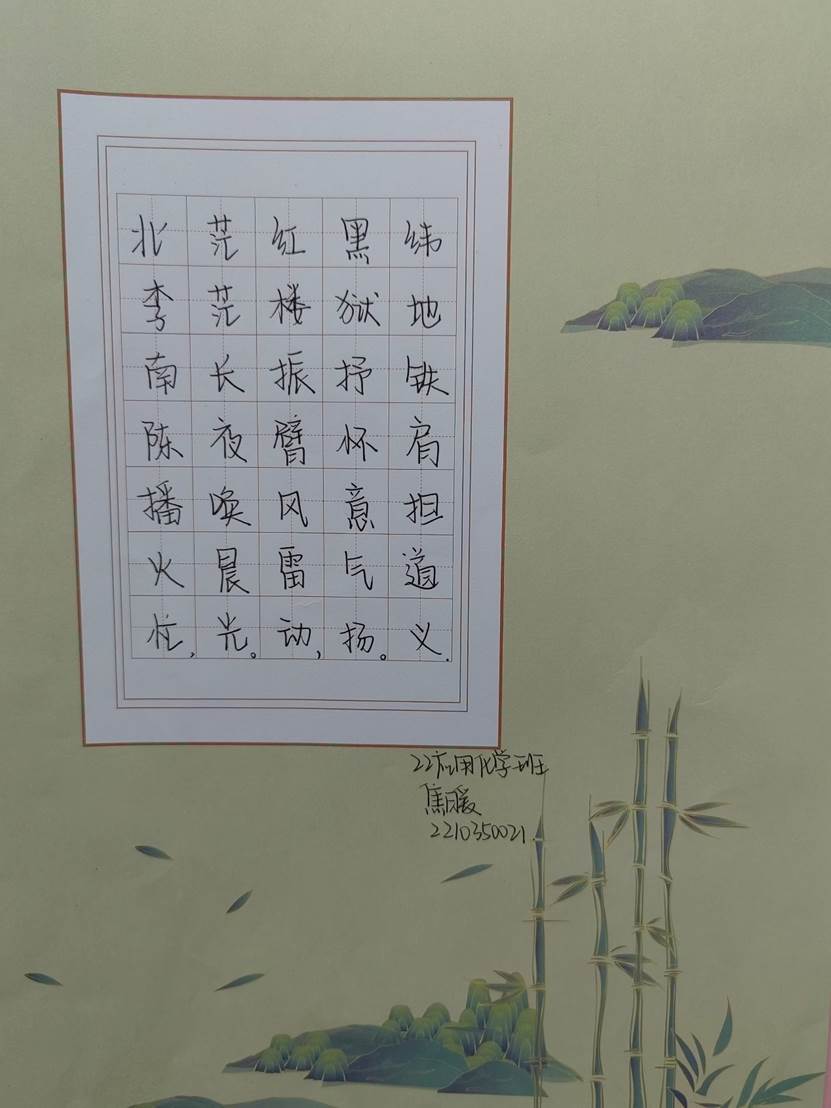 北李南陈播火忙,
茫茫长夜唤晨光。
红楼振臂风雷动,
黑狱抒怀意气扬。
纬地铁肩担道义.
22应用化学班
焦暖
2210350021.